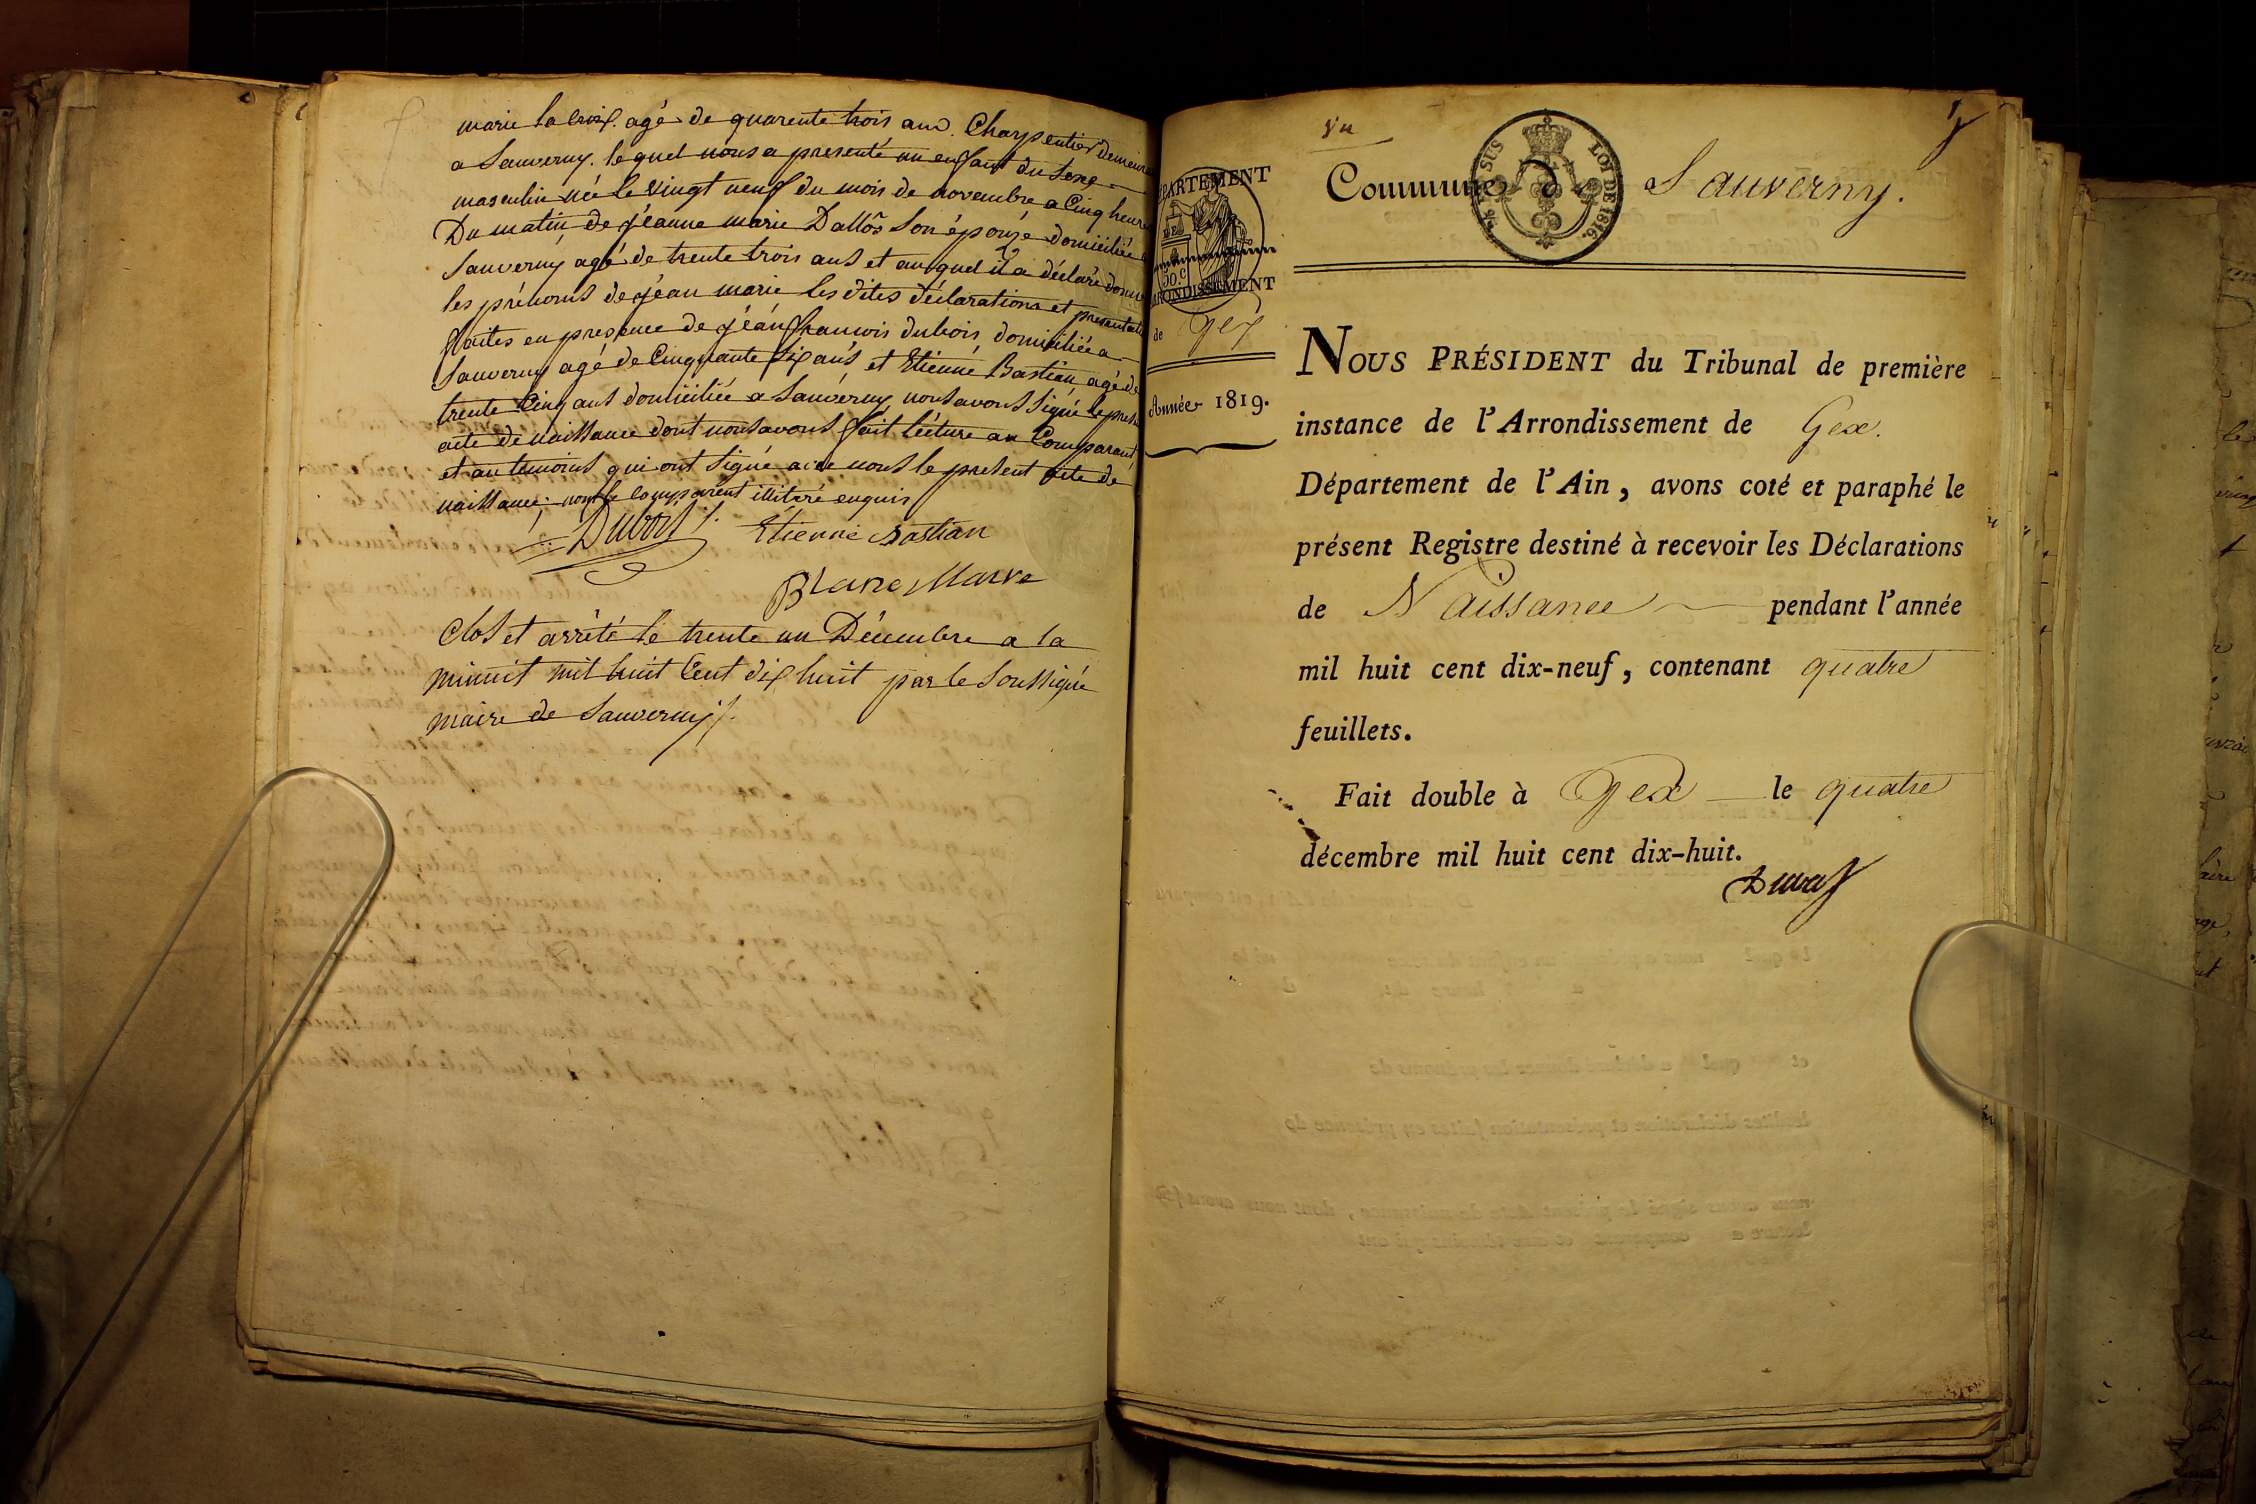 marie la Croix. agé de quarente trois ans. Charpentier demeura
a Sauverny. lequel nous a presenté un enfant du Sexe
masculin née le vingt neuf du mois de novembre a Cinq heure
Du matin de jéanne marie Dallôs Son épouse domiciliée
Sauverny agé de trente trois ans et auquel il a déclaré donne
les prénoms de jéan marie les dites déclarations et presentati
faites en presence de jéan francois dubois domiciliée a
Sauverny agé de Cinquante six ans et Etienné Bastian agé de
trente Cinq ans domiciliée a Sauverny nous avons Signé le prese
acte de naissance dont nous avons fait lécture au Comparant
et au temoins qui ont Signé avec nous le present acte de
naissance. non le comparent illiteré enquis
Dubois Etienne Bastian
Blanc Maire
Clos et arrêté le trente un Décembre a la
minuit mil huit Cent dix huit par le Soussigné
maire de Sauverny
1
Vu
Commune d Sauverny.
SUS
LOI DE 1816.
PARTEMENT
50.C
ARRONDISSEMENT
de Gex
Année 1819.
NOUS PRÉSIDENT du Tribunal de première
instance de l'Arrondissement de Gex.
Département de l'Ain, avons coté et paraphé le
présent Registre destiné à recevoir les Déclarations
de Naissance pendant l'année
mil huit cent dix-neuf, contenant quatre
feuillets.
Fait double à Gex le quatre
décembre mil huit cent dix-huit.